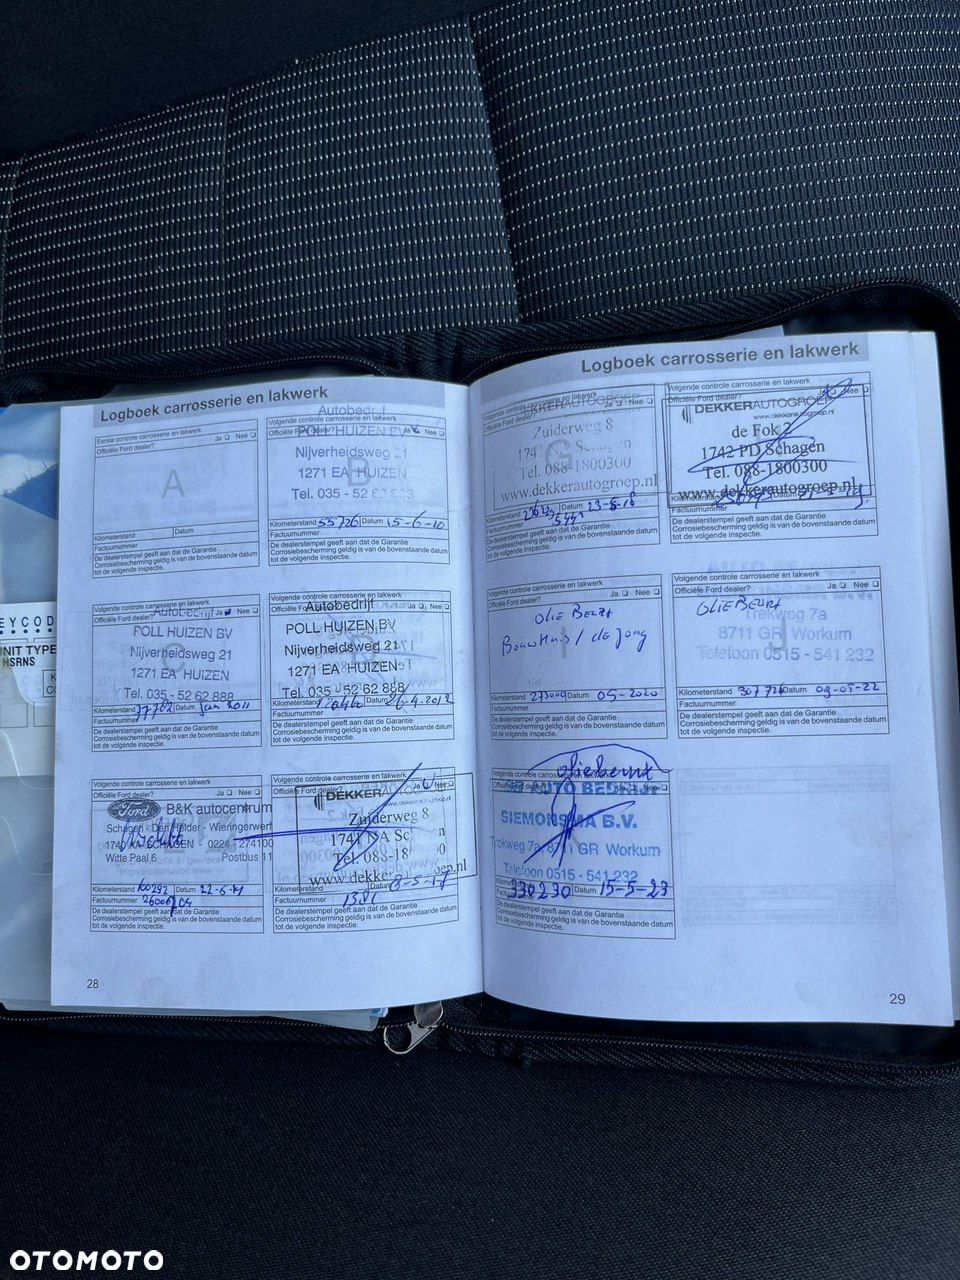 Logboek carrosserie en lakwerk
Eerste controle carrosserie en lakwerk
Officiële Ford dealer? Ja Nee
A
Kilometerstand Datum
Factuurnummer
De dealerstempel geeft aan dat de Garantie
Corrosiebescherming geldig is van de bovenstaande datum
tot de volgende inspectie.
Volgende controle carrosserie en lakwerk
Officiële Ford dealer? Ja Nee
Autobedrijf
POLL HUIZEN BV
Nijverheidsweg 21
1271 EA HUIZEN
Tel. 035 - 52 62 888
Kilometerstand 55726 Datum 15-6-10
Factuurnummer
De dealerstempel geeft aan dat de Garantie
Corrosiebescherming geldig is van de bovenstaande datum
tot de volgende inspectie.
Volgende controle carrosserie en lakwerk
Officiële Ford dealer? Ja Nee
Autobedrijf
C
POLL HUIZEN BV
Nijverheidsweg 21
1271 EA HUIZEN
Tel. 035 - 52 62 888
Kilometerstand Datum Jan 2011
Factuurnummer
De dealerstempel geeft aan dat de Garantie
Corrosiebescherming geldig is van de bovenstaande datum
tot de volgende inspectie.
Volgende controle carrosserie en lakwerk
Officiële Ford dealer? Ja Nee
Autobedrijf
POLL HUIZEN BV
Nijverheidsweg 21
1271 EA HUIZEN
Tel. 035 - 52 62 888
Kilometerstand Datum 26-4-2012
Factuurnummer
De dealerstempel geeft aan dat de Garantie
Corrosiebescherming geldig is van de bovenstaande datum
tot de volgende inspectie.
Volgende controle carrosserie en lakwerk
Officiële Ford dealer? Ja Nee
Ford B&K autocentrum
Schagen - Den Helder - Wieringerwerf
1740 AA SCHAGEN - 0224 - 274100
Witte Paal 6 Postbus 11
Kilometerstand Datum
Factuurnummer
De dealerstempel geeft aan dat de Garantie
Corrosiebescherming geldig is van de bovenstaande datum
tot de volgende inspectie.
Volgende controle carrosserie en lakwerk
Officiële Ford dealer? Ja Nee
DEKKER
www.dekkerautogroep.nl
Zuiderweg 8
Tel. 088-18
Kilometerstand Datum
Factuurnummer
De dealerstempel geeft aan dat de Garantie
Corrosiebescherming geldig is van de bovenstaande datum
tot de volgende inspectie.
28
Logboek carrosserie en lakwerk
Volgende controle carrosserie en lakwerk
Officiële Ford dealer?
DEKKERAUTOGROEP
Zuiderweg 8
G
Tel. 088-1800300
www.dekkerautogroep.nl
Kilometerstand Datum 23-5-18
Factuurnummer
De dealerstempel geeft aan dat de Garantie
Corrosiebescherming geldig is van de bovenstaande datum
tot de volgende inspectie.
Volgende controle carrosserie en lakwerk
Officiële Ford dealer? Ja Nee
DEKKERAUTOGROEP
www.dekkerautogroep.nl
de Fok 2
1742 PD Schagen
Tel. 088-1800300
www.dekkerautogroep.nl
Kilometerstand Datum
Factuurnummer
De dealerstempel geeft aan dat de Garantie
Corrosiebescherming geldig is van de bovenstaande datum
tot de volgende inspectie.
Volgende controle carrosserie en lakwerk
Officiële Ford dealer? Ja Nee
OLIE BEURT
Bouwhuis / de Jong
I
Kilometerstand 273000 Datum 05-2020
Factuurnummer
De dealerstempel geeft aan dat de Garantie
Corrosiebescherming geldig is van de bovenstaande datum
tot de volgende inspectie.
Volgende controle carrosserie en lakwerk
Officiële Ford dealer? Ja Nee
OLIE BEURT
Trekweg 7a
8711 GR Workum
J
Telefoon 0515 - 541 232
Kilometerstand 307726 Datum 09-05-22
Factuurnummer
De dealerstempel geeft aan dat de Garantie
Corrosiebescherming geldig is van de bovenstaande datum
tot de volgende inspectie.
Volgende controle carrosserie en lakwerk
oliebeurt
Ja Nee
AUTO BEDRIJF
SIEMONSMA B.V.
Trekweg 7a, 8711 GR Workum
Telefoon 0515 - 541 232
Kilometerstand 330230 Datum 15-5-23
Factuurnummer
De dealerstempel geeft aan dat de Garantie
Corrosiebescherming geldig is van de bovenstaande datum
tot de volgende inspectie.
29
UNIT TYPE
HSRNS
OTOMOTO